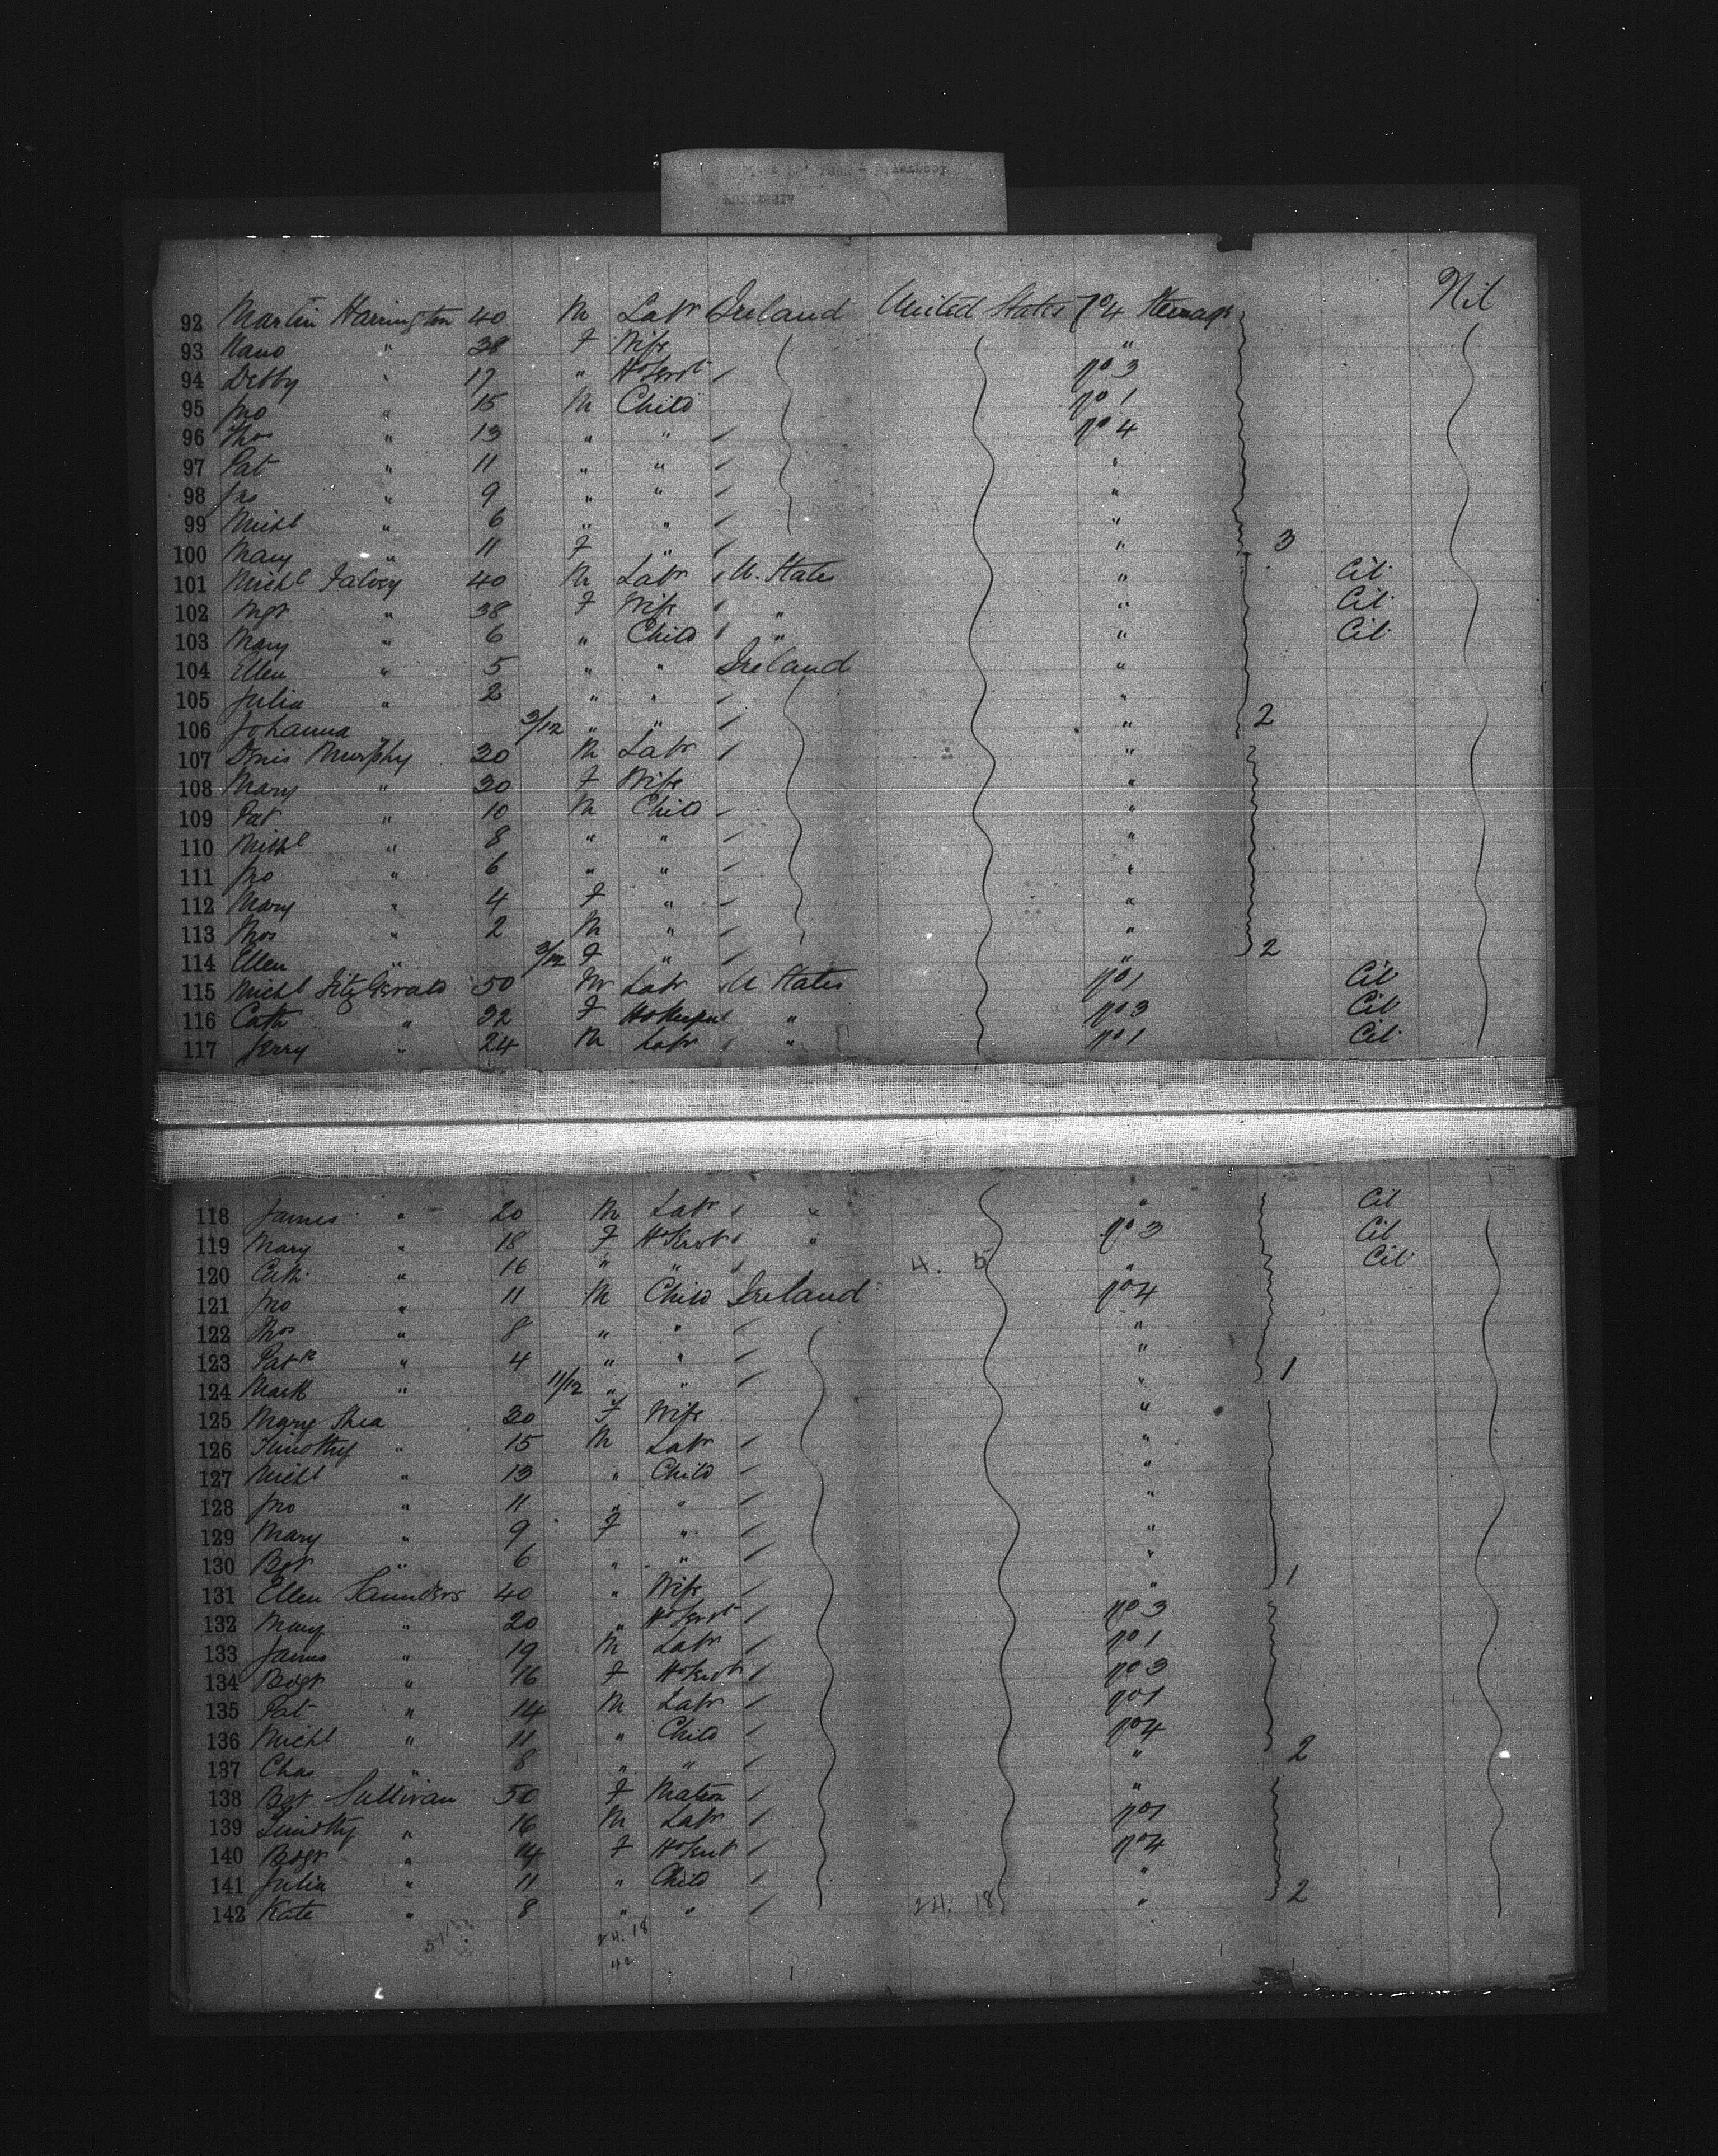 Nil
92 Martin Harrington 40 M Labr Ireland United States No 4 Steerage
93 Nano " 38 F Wife "
94 Debby " 17 " Ho Servt No 3
95 Jno " 15 M Child No 1
96 Thos " 13 " " No 4
97 Pat " 11 " " "
98 Jas " 9 " " "
99 Michl " 6 " " "
100 Mary " 11 F " " 3
101 Michl Falvey 40 M Labr U. States " Cit
102 Mgt " 38 F Wife " " Cit
103 Mary " 6 " Child " " Cit
104 Ellen " 5 " " Ireland "
105 Julia " 2 " " "
106 Johanna " 3/12 " " " 2
107 Denis Murphy 30 M Labr "
108 Mary " 30 F Wife "
109 Pat " 10 M Child "
110 Michl " 8 " " "
111 Jno " 6 " " "
112 Mary " 4 F " "
113 Thos " 2 M " "
114 Ellen " 3/12 F " " 2
115 Michl FitzGerald 50 M Labr U States No 1 Cit
116 Cath " 32 F HoKeeper " No 3 Cit
117 Jerry " 24 M Labr " No 1 Cit
118 James " 20 M Labr " " Cit
119 Mary " 18 F Ho Servt " No 3 Cit
120 Cath " 16 " " 4. 5 " Cit
121 Jno " 11 M Child Ireland No 4
122 Thos " 8 " " "
123 Patk " 4 " " " 1
124 Mark " 11/12 " " "
125 Mary Shea 30 F Wife "
126 Timothy " 15 M Labr "
127 Michl " 13 " Child "
128 Jno " 11 " " "
129 Mary " 9 F " "
130 Bgt " 6 " " "
131 Ellen Saunders 40 " Wife " 1
132 Mary " 20 " Ho Servt No 3
133 James " 19 M Labr No 1
134 Bdgt " 16 F Ho Servt No 3
135 Pat " 14 M Labr No 1
136 Michl " 11 " Child No 4
137 Chas " 8 " " " 2
138 Bgt Sullivan 50 F Matron "
139 Timothy " 16 M Labr No 1
140 Bdgt " 14 F Ho Servt No 4
141 Julia " 11 " Child "
142 Kate " 8 " " 24. 18 " 2
24. 18
42